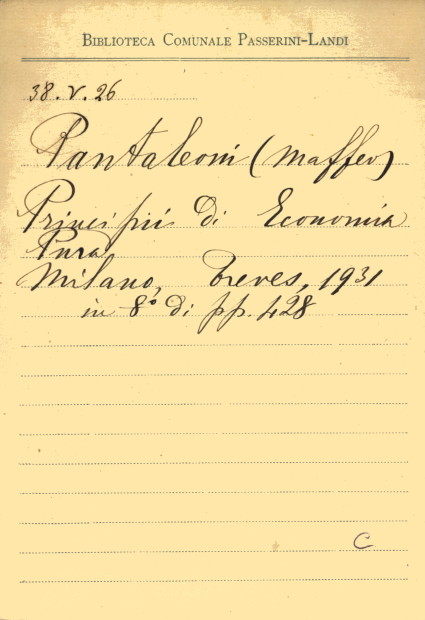 BIBLIOTECA COMUNALE PASSERINI-LANDI
38.V.26
Pantaleoni (Maffeo)
Principii di Economia
Pura
Milano, Treves, 1931
in 8° di pp. 428
C